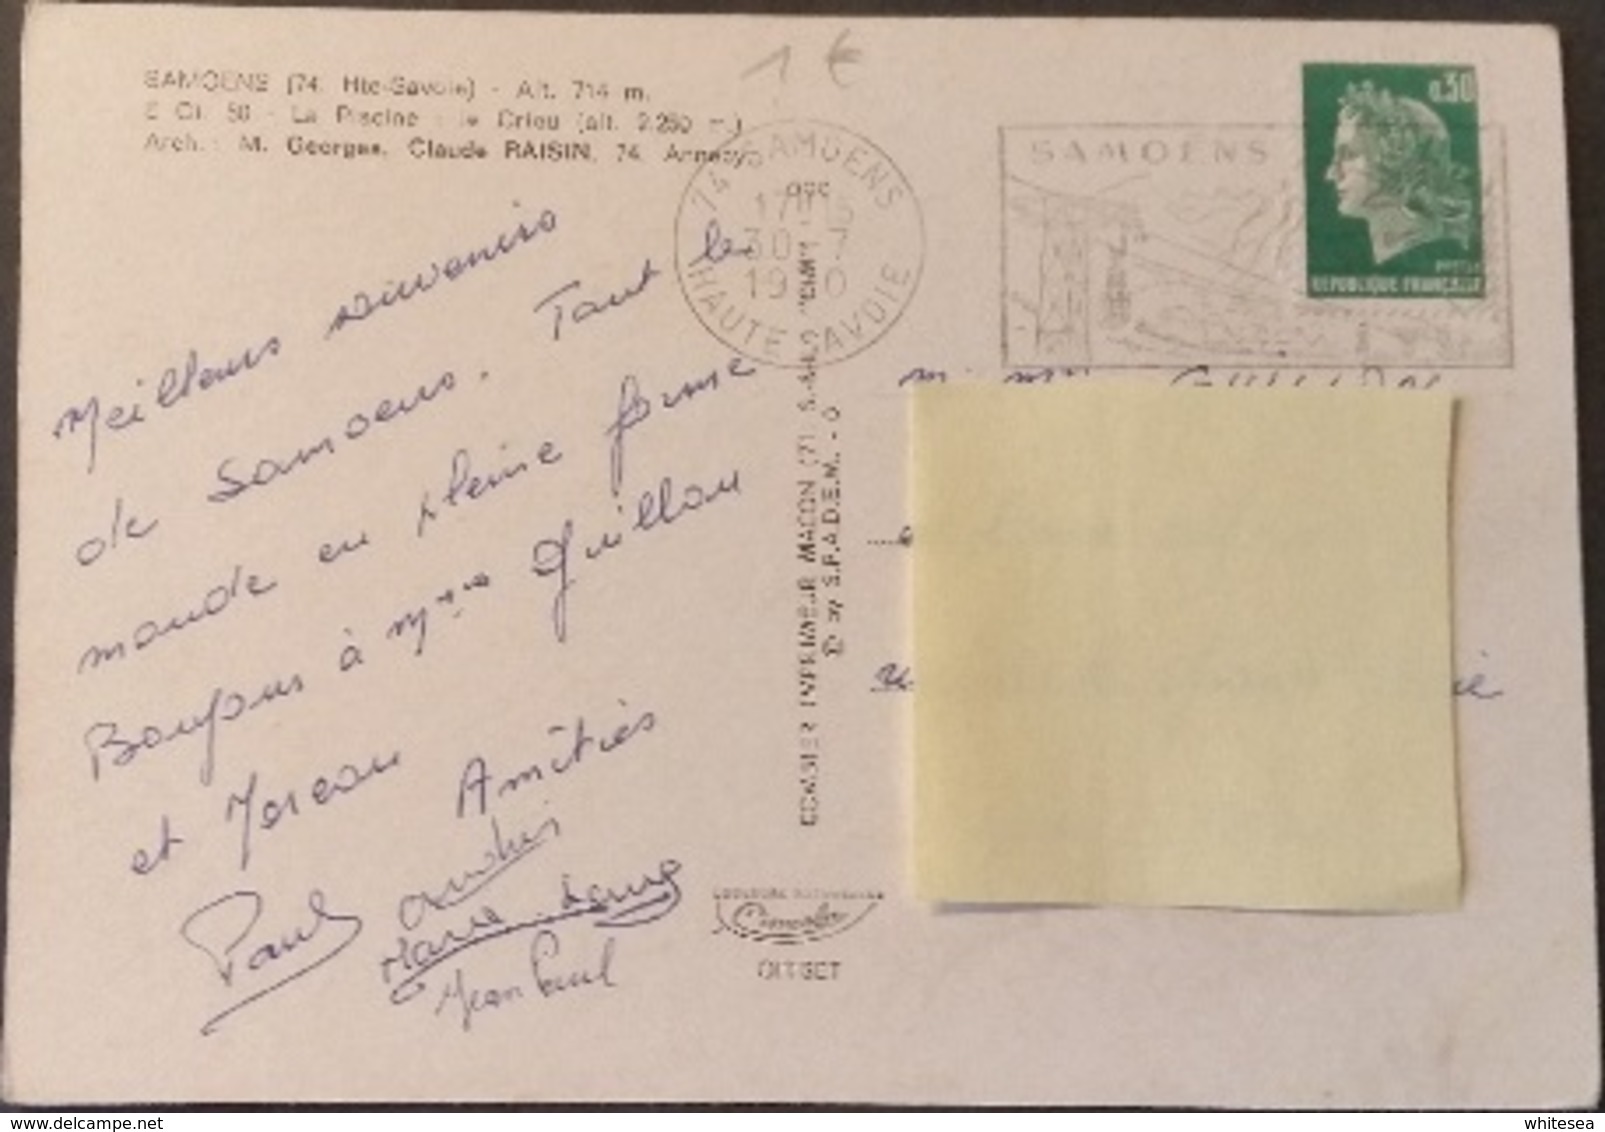 1 €
SAMOENS (74. Hte-Savoie) - Alt. 714 m.
50 - La Piscine : le Criou (alt. 2.250 m.)
Arch. : M. Georges, Claude RAISIN, 74. Annecy
74 SAMOENS
30-7
HAUTE SAVOIE
SAMOENS
0,30
REPUBLIQUE FRANÇAISE
Meilleurs souvenirs
de Samoens. Tout le
monde en pleine forme
Bonjour à Mme Guillou
et Moreau
Amitiés
Paul
Jean Paul
COMBIER IMPRIMEUR MACON (71 S.-&-L.)
© by S.P.A.D.E.M. -
Cimcolor
OFFSET
whitesea